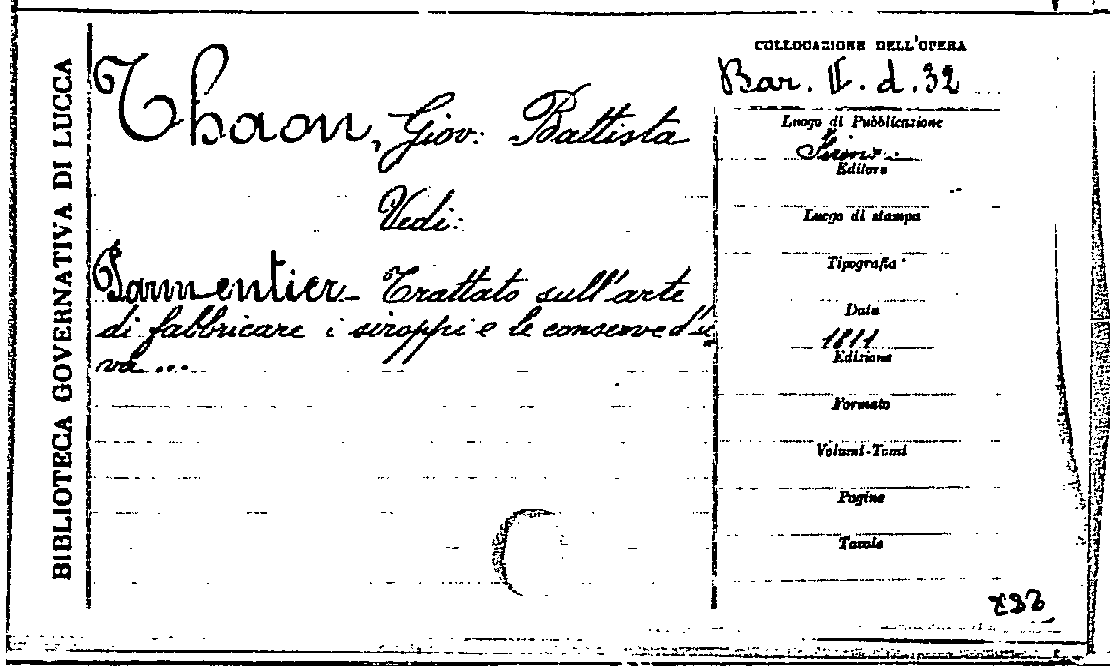 BIBLIOTECA GOVERNATIVA DI LUCCA
Thaon, Giov: Battista
Vedi:
Parmentier - Trattato sull'arte
di fabbricare i siroppi e le conserve d'u
va ...
COLLOCAZIONE DELL'OPERA
Bar. V. d. 32
Luogo di Pubblicazione
Editore
Luogo di stampa
Tipografia
Data
1811
Edizione
Formato
Volumi-Tomi
Pagine
Tavole